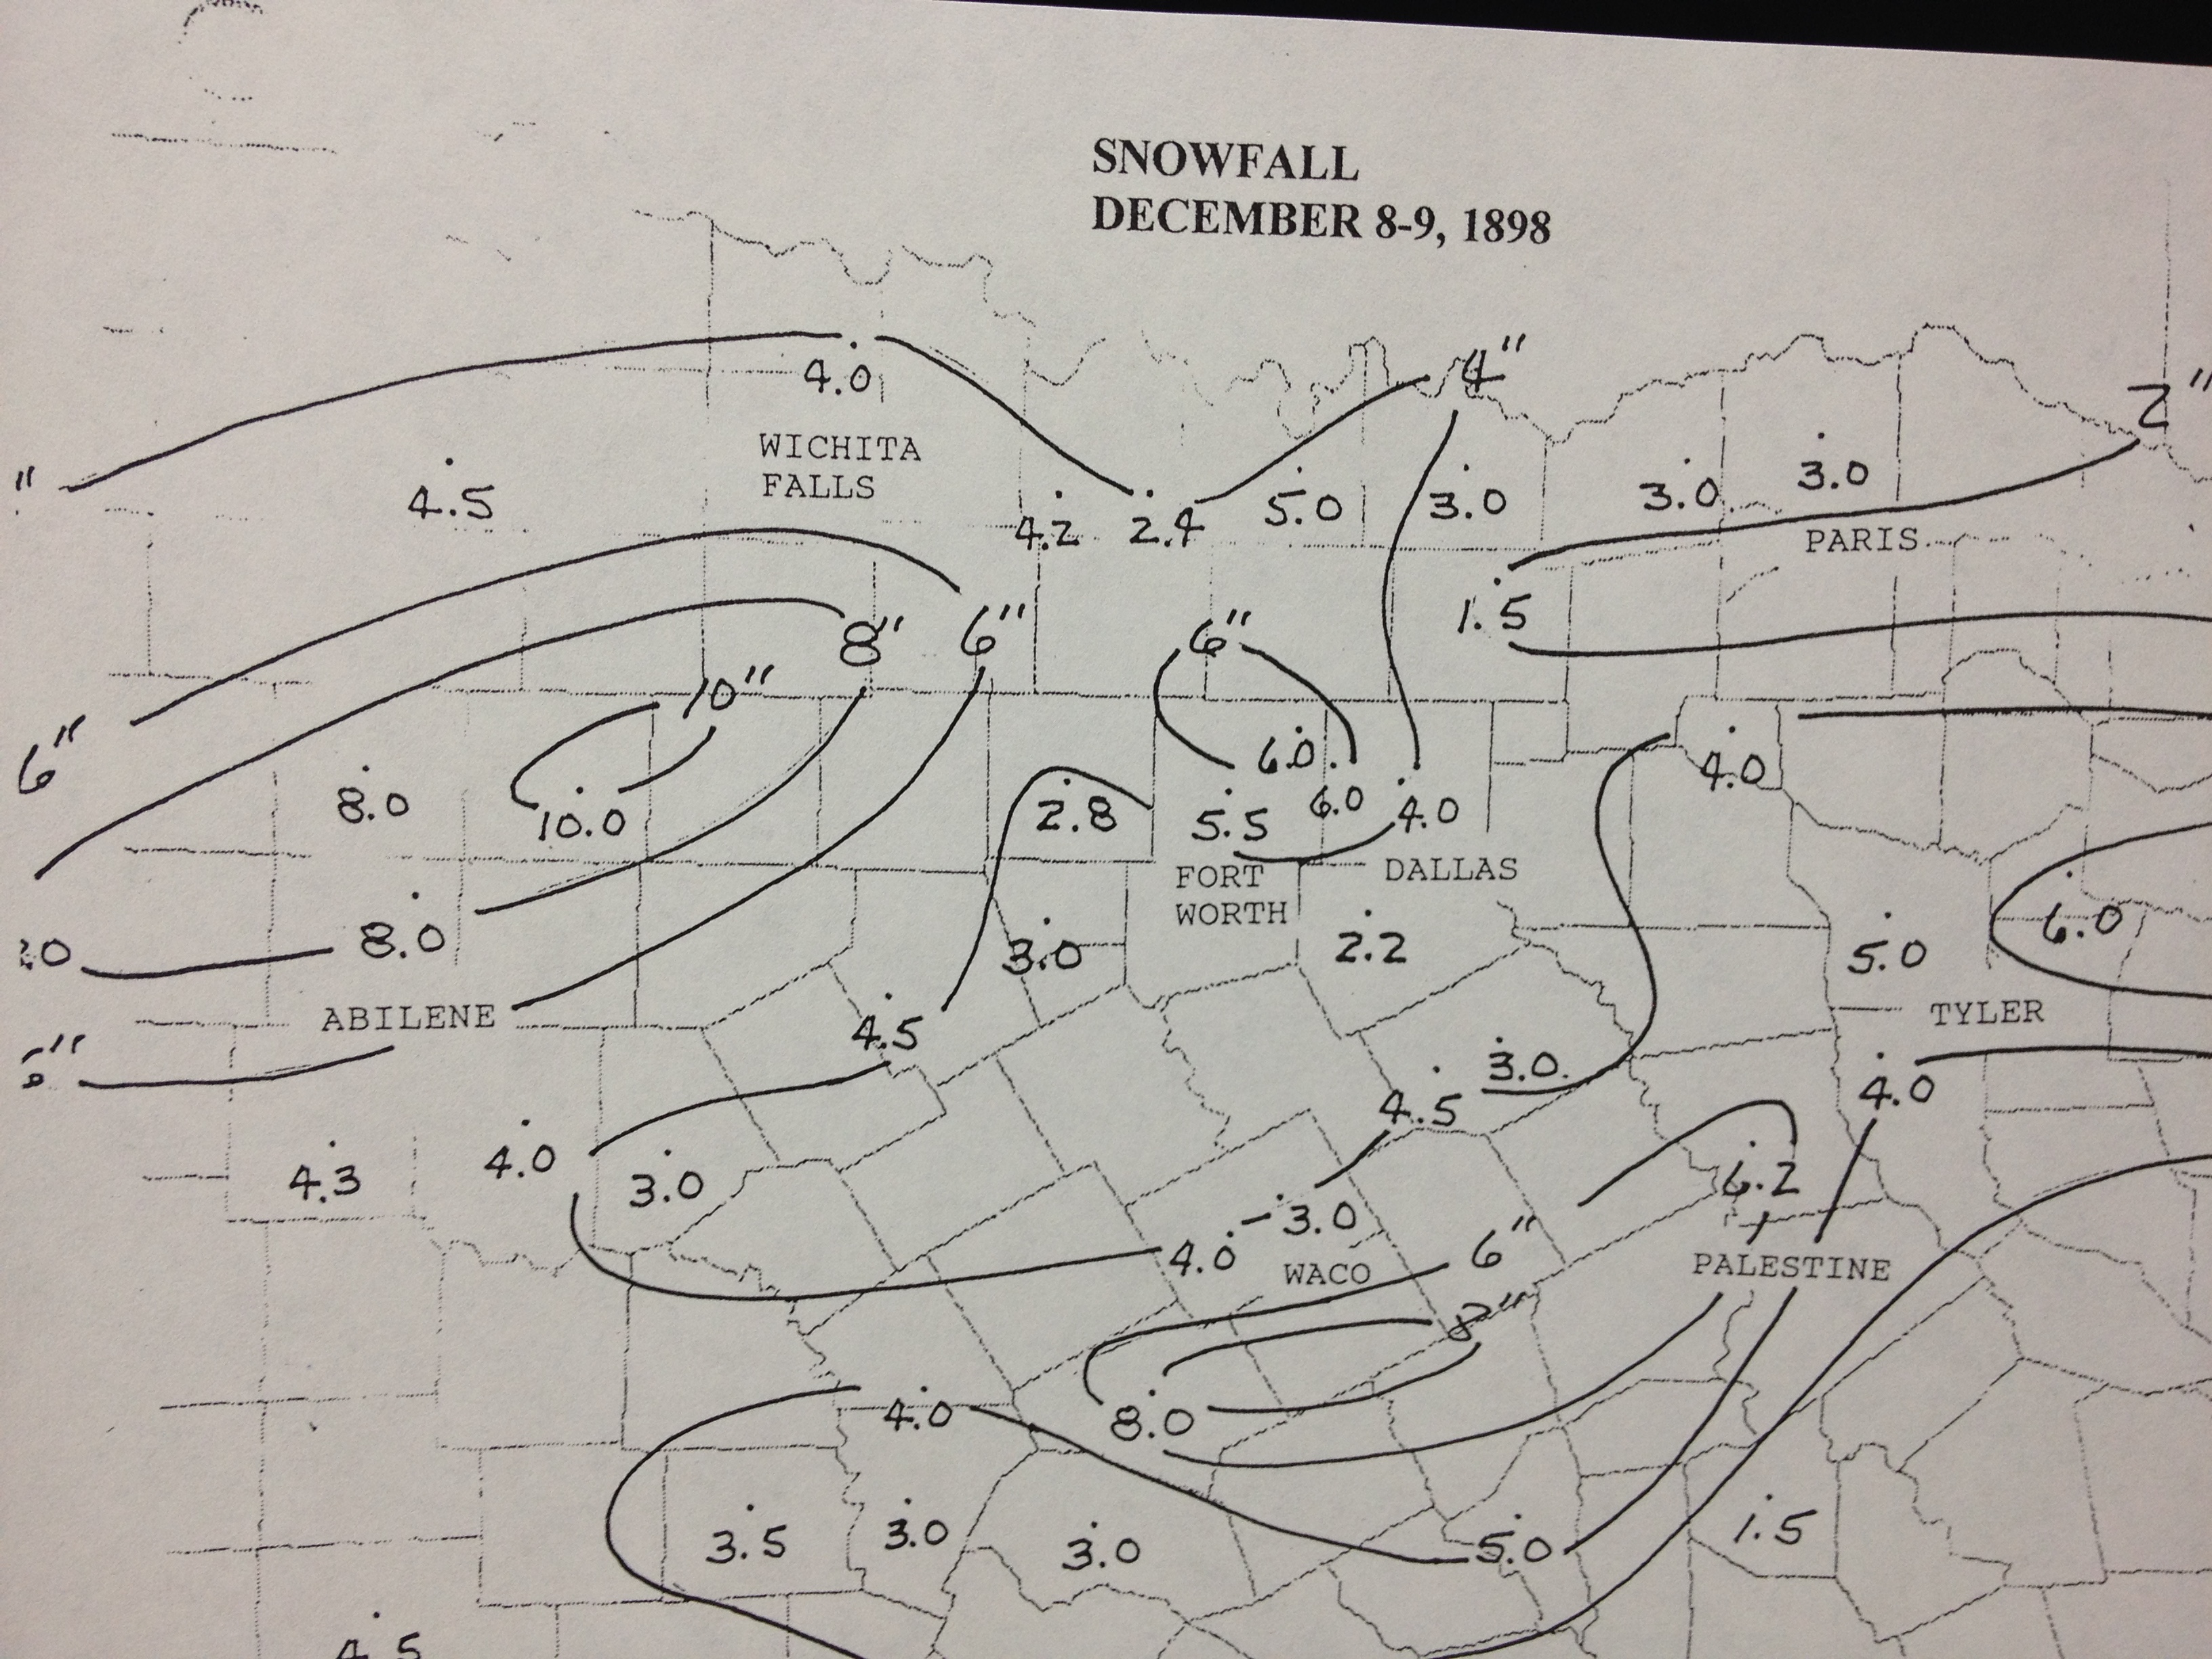 SNOWFALL
DECEMBER 8-9, 1898
4"
2"
"
4.0
WICHITA
FALLS
4.5
4.2
2.4
5.0
3.0
3.0
3.0
PARIS
1.5
8"
6"
6"
10"
6"
8.0
10.0
2.8
6.0
5.5
6.0
4.0
4.0
FORT
WORTH
DALLAS
8.0
3.0
2.2
5.0
6.0
ABILENE
TYLER
4.5
3.0
4.5
4.0
4.3
4.0
3.0
6.2
4.0
3.0
6"
WACO
PALESTINE
4.0
8.0
3.5
3.0
3.0
5.0
1.5
4.5